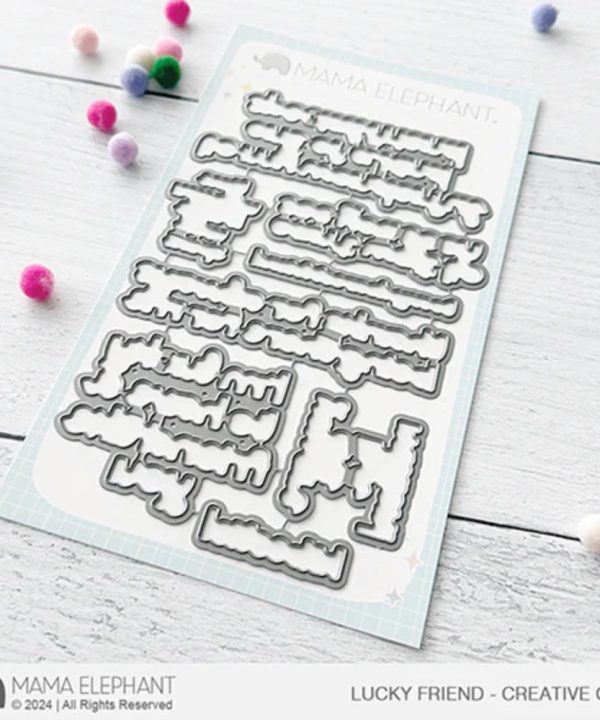 MAMA ELEPHANT.
MAMA ELEPHANT
© 2024 | All Rights Reserved
LUCKY FRIEND - CREATIVE